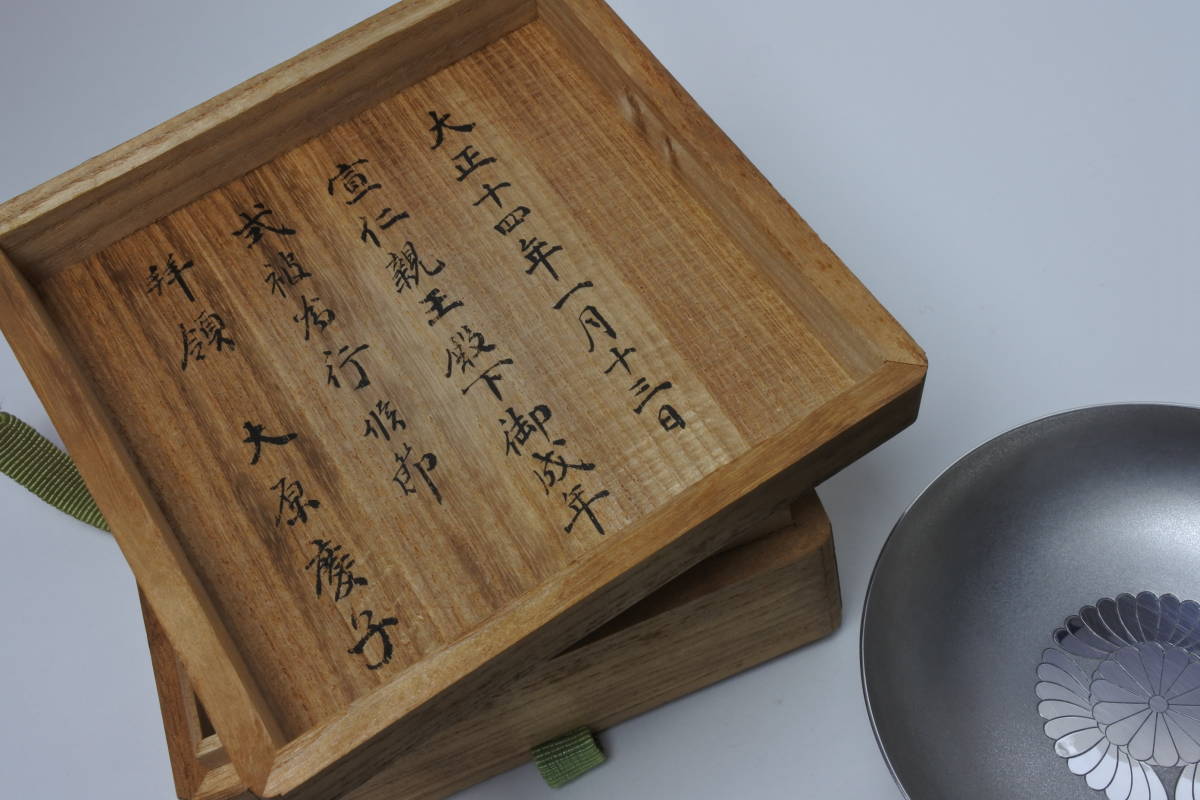 大正十四年一月十三日
宣仁親王殿下御成年
式被為行候節
拝領 大原慶子